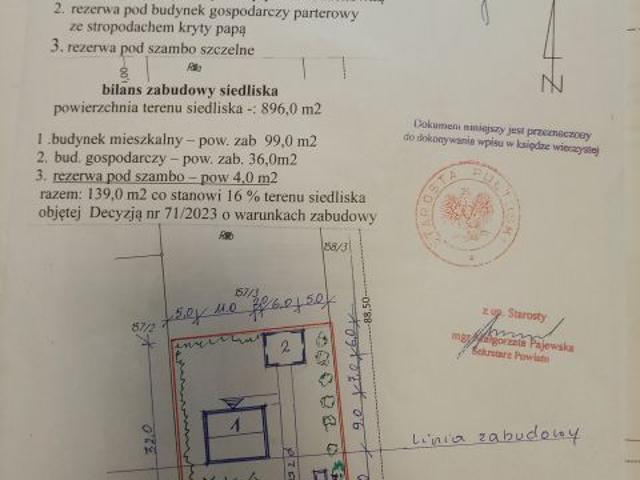 2. rezerwa pod budynek gospodarczy parterowy
ze stropodachem kryty papą
3. rezerwa pod szambo szczelne
1,00
bilans zabudowy siedliska
powierzchnia terenu siedliska -: 896,0 m2
1 .budynek mieszkalny – pow. zab 99,0 m2
2. bud. gospodarczy – pow. zab. 36,0m2
3. rezerwa pod szambo – pow 4,0 m2
razem: 139,0 m2 co stanowi 16 % terenu siedliska
objętej Decyzją nr 71/2023 o warunkach zabudowy
N
Dokument niniejszy jest przeznaczony
do dokonywania wpisu w księdze wieczystej
STAROSTA PUŁTUSKI
z up. Starosty
mgr Małgorzata Pajewska
Sekretarz Powiatu
158/3
157/3
5.0 11.0 6.0 5.0
157/2
88,50
6.0
7.0
9.0
2
1
32.0
Linia zabudowy